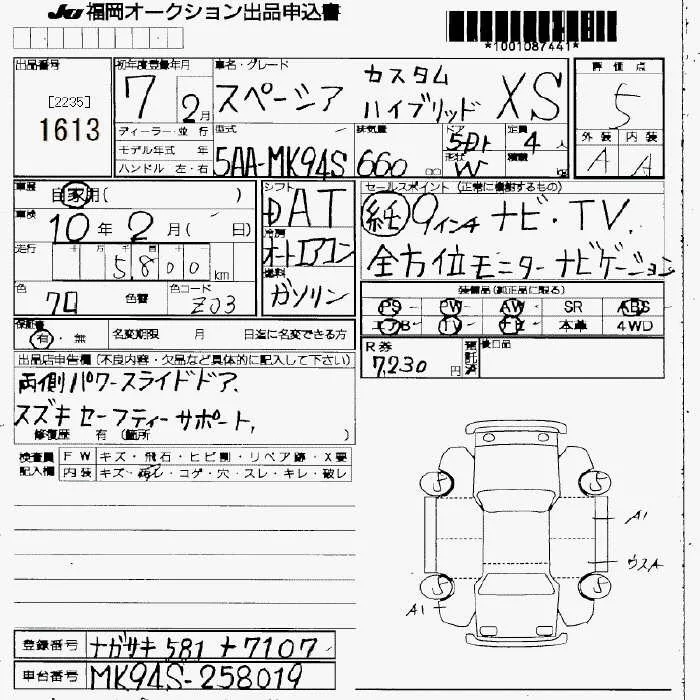 JU 福岡オークション出品申込書
*1001087441*
出品番号
[2235]
1613
初年度登録年月
7 2月
車名・グレード
スペーシア カスタム ハイブリッド XS
評価点
5
外装 内装
A A
ディーラー・並行
モデル年式 年
ハンドル 左・右
型式
5AA-MK94S
排気量
660 cc
ドア
5Dr
形状
W
定員
4人
積載
kg
車歴
自家用(
車検
10年2月( 日)
走行
十 万 千 百 十
5,800 km
色
クロ
色替
色コード
ZJ3
シフト
AT
冷房
オートエアコン
燃料
ガソリン
セールスポイント (正常に機能するもの)
9インチナビ・TV.
全方位モニターナビゲーション
装備品(純正品に限る)
PS PW AW SR ABS
エアB TV ナビ 本革 4WD
保証書
有・無
名変期限 月 日迄に名変できる方
R券
7,230円
預託済
後日品
出品店申告欄(不良内容・欠品など具体的に記入して下さい)
両側パワースライドドア、
スズキセーフティーサポート,
修復歴 有(箇所 )
検査員記入欄
FW キズ・飛石・ヒビ割・リペア跡・X要
内装 キズ・汚レ・コゲ・穴・スレ・キレ・破レ
5 5
A1
ウスA
5 5
A1
登録番号 ナガサキ 581 ナ7107
車台番号 MK94S-258019